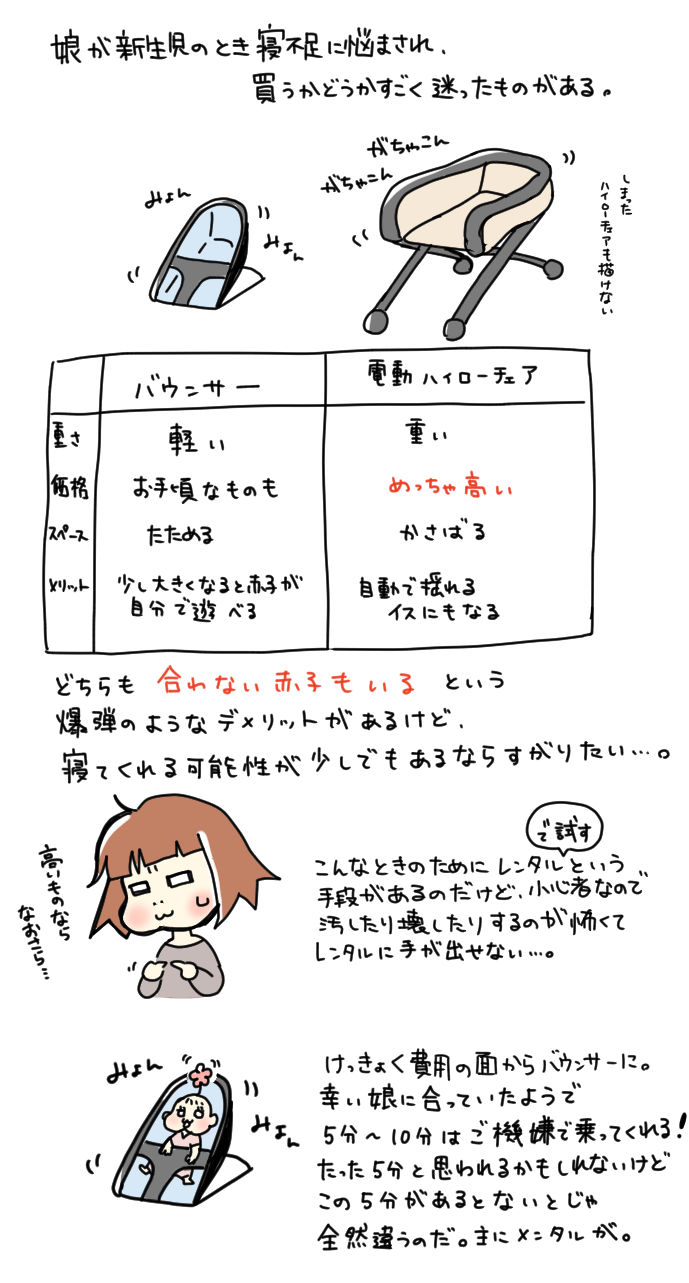 娘が新生児のとき寝不足に悩まされ、
買うかどうかすごく迷ったものがある。
みょん
みょん
がちゃこん
がちゃこん
しまった
ハイローチェアも描けない
バウンサー 電動ハイローチェア
重さ 軽い 重い
価格 お手頃なものも めっちゃ高い
スペース たためる かさばる
メリット 少し大きくなると赤子が 自動で揺れる
自分で遊べる イスにもなる
どちらも 合わない赤子もいる という
爆弾のようなデメリットがあるけど、
寝てくれる可能性が少しでもあるならすがりたい…。
高いものなら
なおさら…
で試す
こんなときのためにレンタルという
手段があるのだけど、小心者なので
汚したり壊したりするのが怖くて
レンタルに手が出せない…。
みょん
みょん
けっきょく費用の面からバウンサーに。
幸い娘に合っていたようで
5分〜10分はご機嫌で乗ってくれる!
たった5分と思われるかもしれないけど
この5分があるとないとじゃ
全然違うのだ。主にメンタルが。